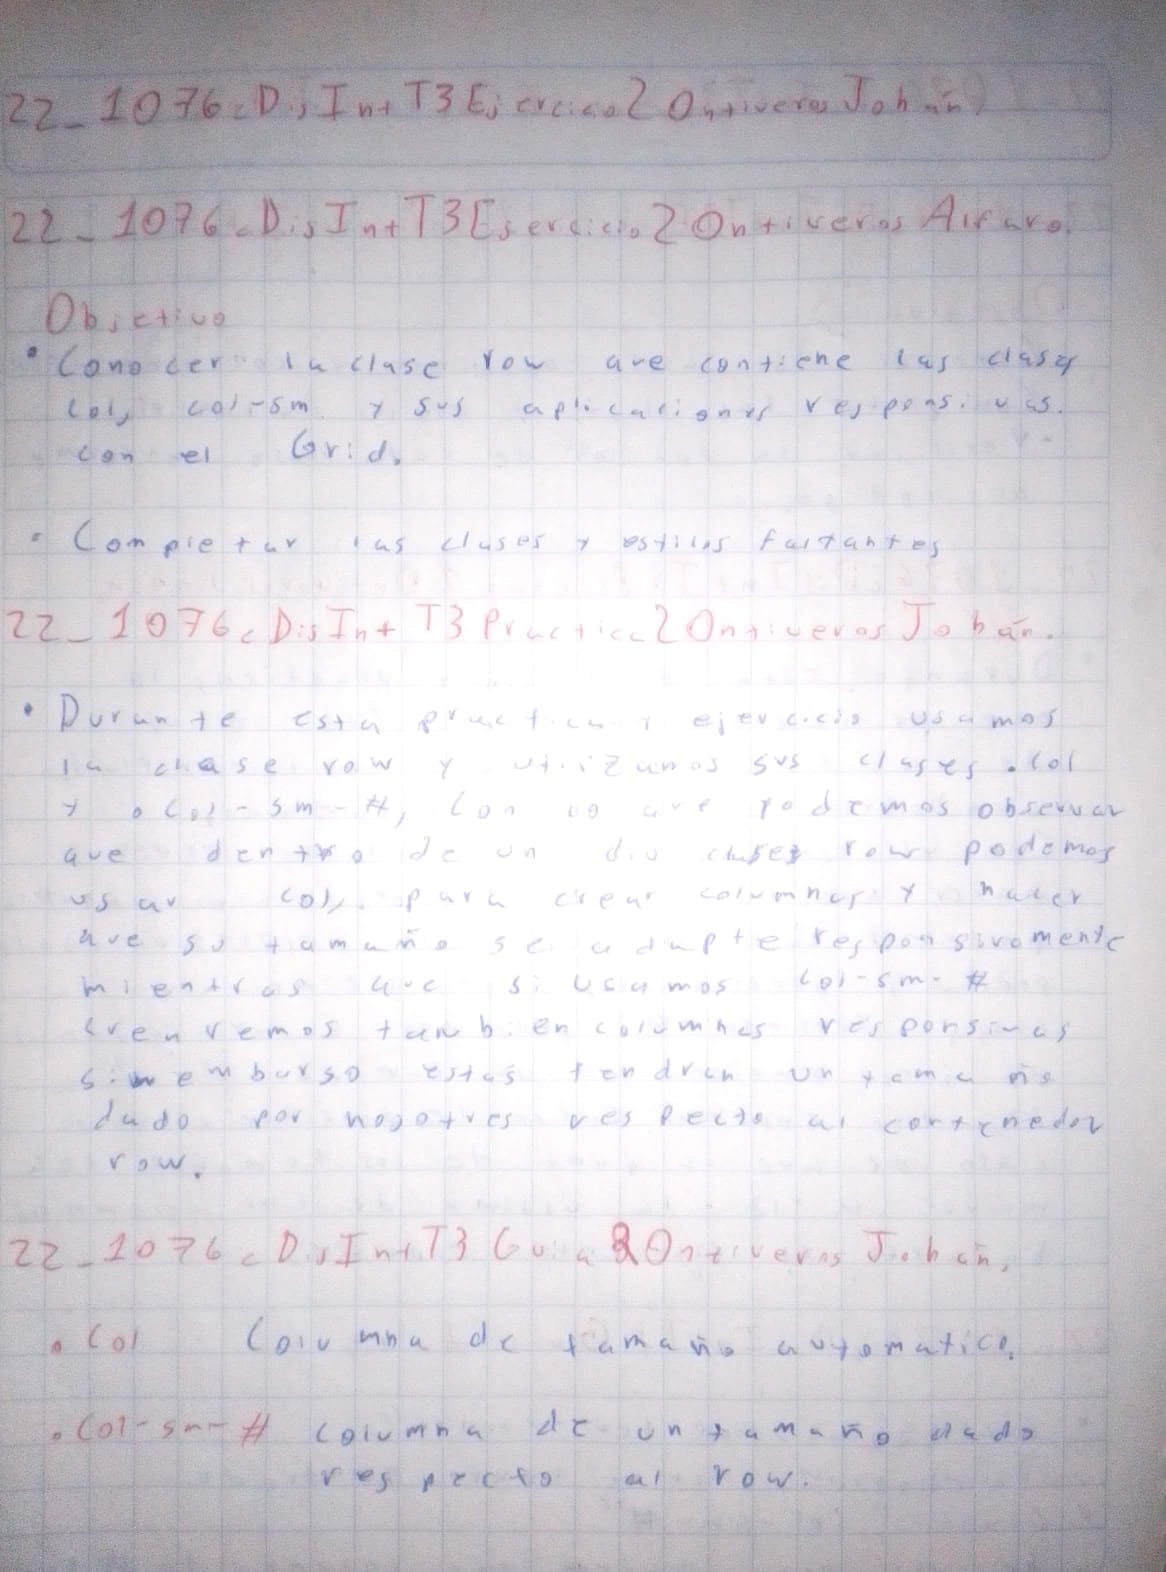 22_1076cDisIntT3Ejercicio2OntiverosJohan
22_1076cDisIntT3Ejercicio2OntiverosAlfaro.
Objetivo
• Conocer la clase row que contiene las clases
col, col-sm y sus aplicaciones responsivas.
con el Grid.
• Completar las clases y estilos faltantes
22_1076cDisIntT3Practica2OntiverosJohan.
• Durante esta practica y ejercicio usamos
la clase row y utilizamos sus clases .col
y .col-sm-#, con lo que podemos observar
que dentro de un div clases row podemos
usar col, para crear columnas y hacer
que su tamaño se adapte responsivamente
mientras que si usamos col-sm-#
crearemos tambien columnas responsivas
sin embargo estas tendran un tamaño
dado por nosotros respecto al contenedor
row.
22_1076cDisIntT3Guia2OntiverosJohan.
• Col Columna de tamaño automatico.
• Col-sm-# columna de un tamaño dado
respecto al row.